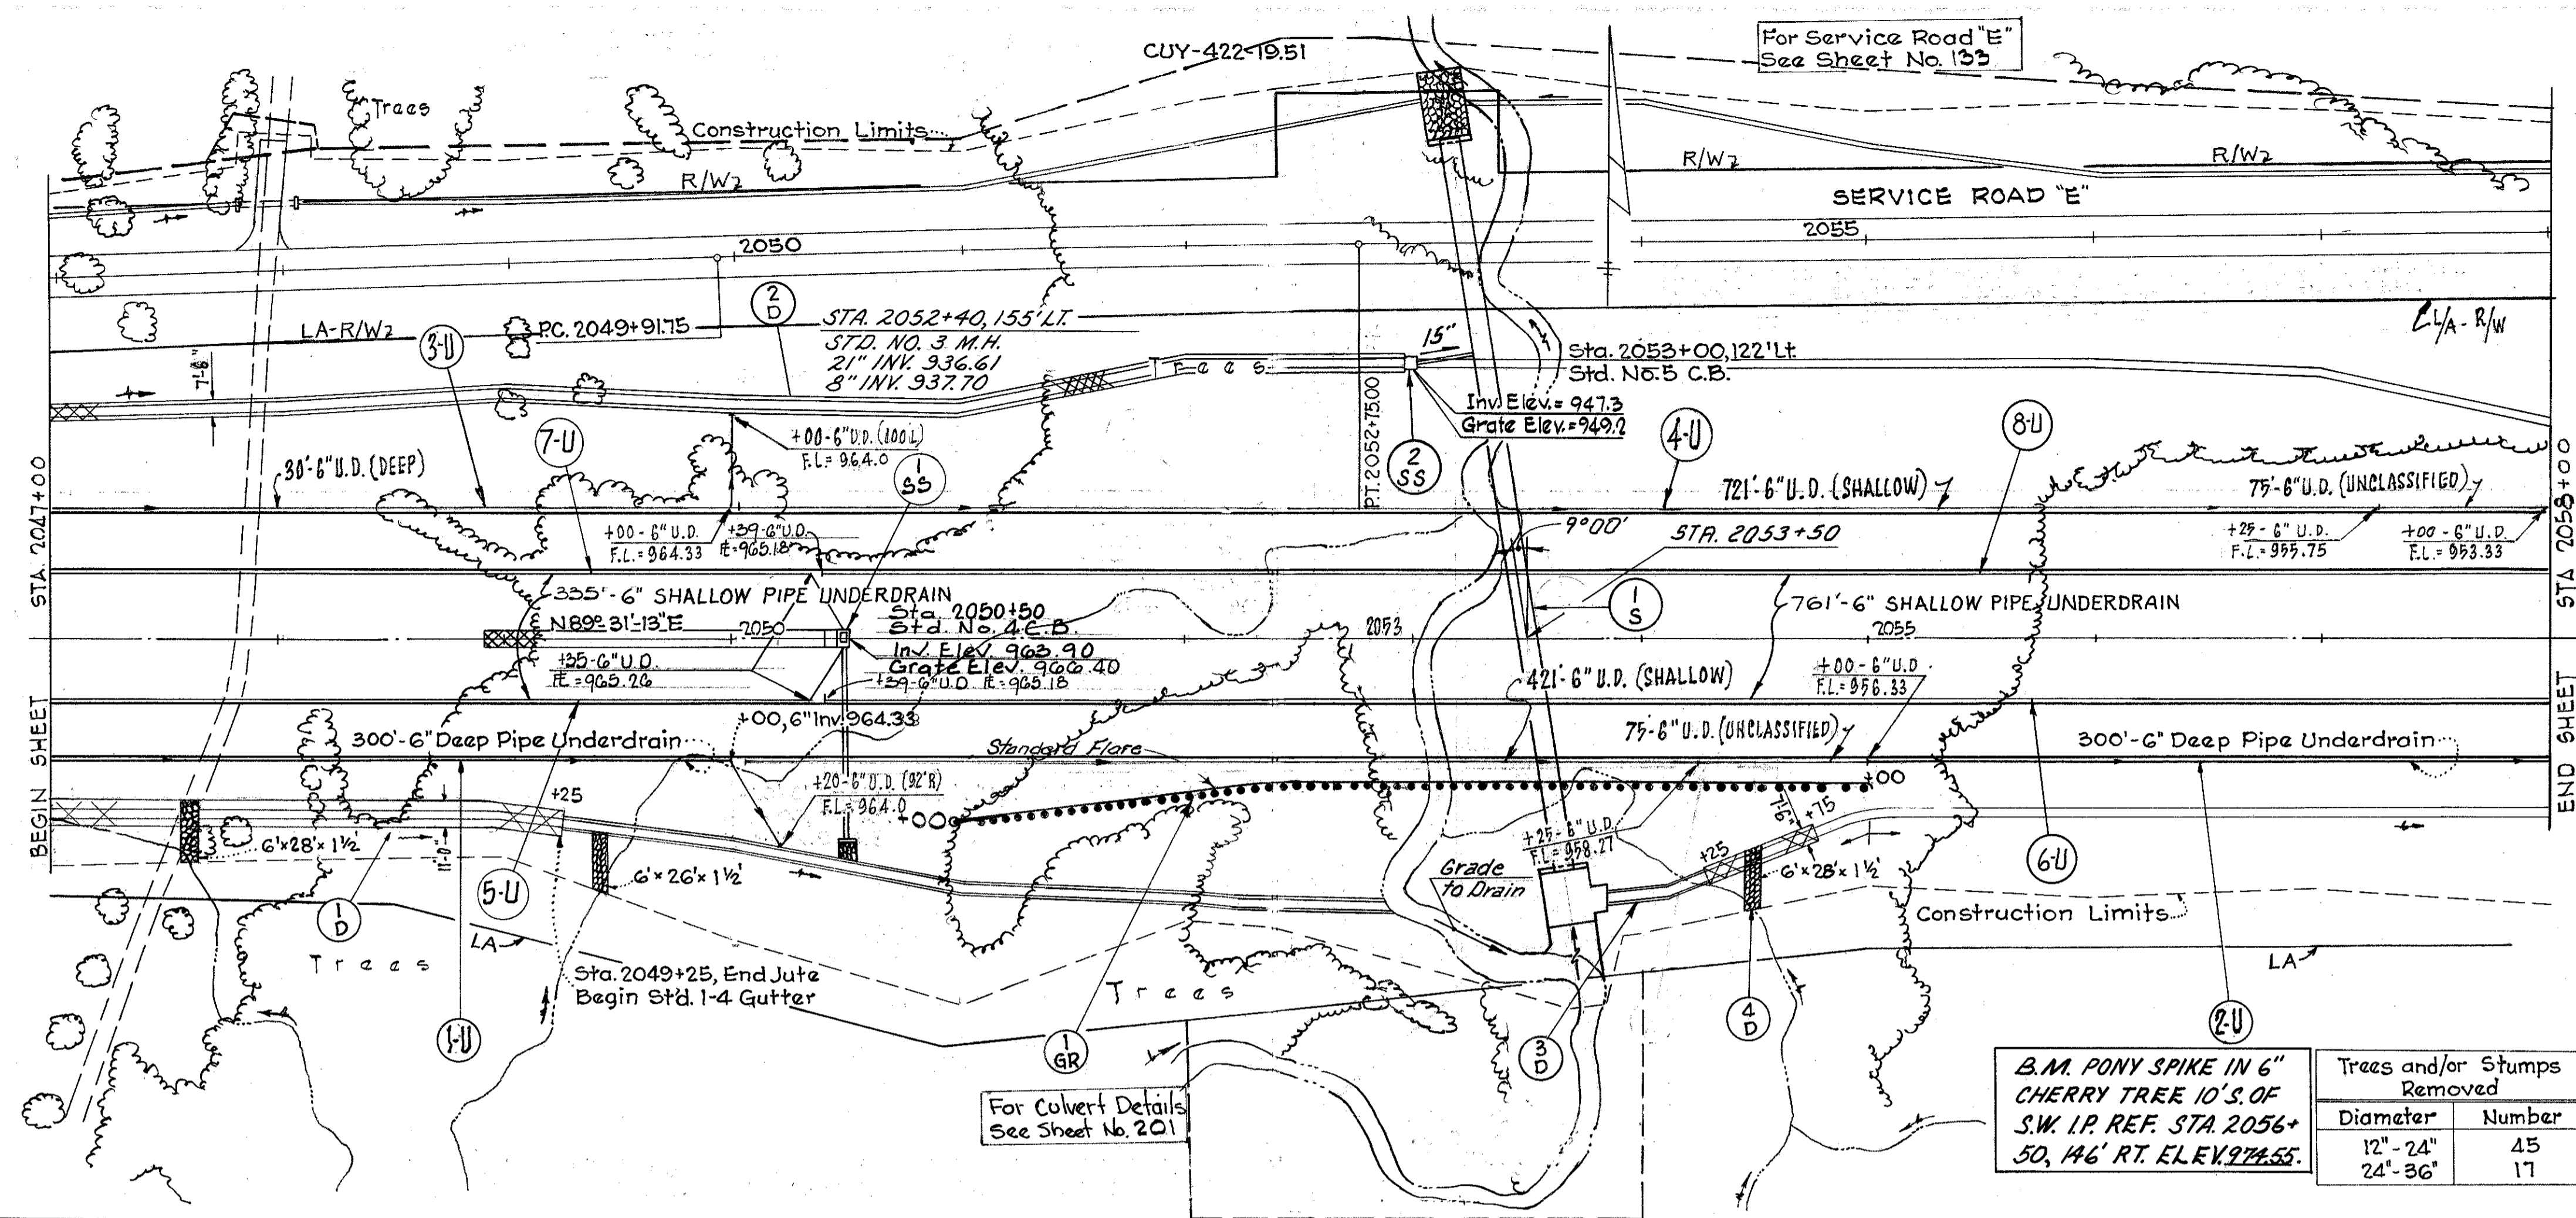 CUY-422-19.51
For Service Road "E"
See Sheet No. 133
Trees
Construction Limits
R/W
R/W
R/W
SERVICE ROAD "E"
2050
2055
LA-R/W
P.C. 2049+91.75
2
D
STA. 2052+40, 155' LT.
STD. NO. 3 M.H.
21" INV. 936.61
8" INV. 937.70
L/A-R/W
3-U
7'-6"
Trees
15"
Sta. 2053+00, 122' Lt.
Std. No. 5 C.B.
Inv. Elev. = 947.3
Grate Elev. = 949.2
P.T. 2052+75.00
2
SS
4-U
8-U
7-U
+00-6" U.D. (100'L)
F.L. = 964.0
1
SS
30'-6" U.D. (DEEP)
721'-6" U.D. (SHALLOW)
75'-6" U.D. (UNCLASSIFIED)
BEGIN SHEET STA. 2047+00
END SHEET STA 2058+00
+00-6" U.D.
F.L. = 964.33
+39-6" U.D.
FL = 965.18
9°00'
STA. 2053+50
+25-6" U.D.
F.L. = 955.75
+00-6" U.D.
F.L. = 953.33
335'-6" SHALLOW PIPE UNDERDRAIN
N89°31'-13"E
2050
Sta. 2050+50
Std. No. 4 C.B.
Inv. Elev. 963.90
Grate Elev. 966.40
2053
1
S
761'-6" SHALLOW PIPE UNDERDRAIN
2055
+35-6" U.D.
FL = 965.26
+39-6" U.D. FL = 965.18
421'-6" U.D. (SHALLOW)
+00-6" U.D.
F.L. = 956.33
+00, 6" Inv. 964.33
300'-6" Deep Pipe Underdrain
Standard Flare
75'-6" U.D. (UNCLASSIFIED)
300'-6" Deep Pipe Underdrain
+20-6" U.D. (92'R)
F.L. = 964.0
+25
+00
+00
7'-6"
+75
6'x28'x1½'
11'-0"
6'x26'x1½'
+25-6" U.D.
F.L. = 958.27
+25
6'x28'x1½'
6-U
5-U
Grade
to Drain
1
D
LA
Construction Limits
LA
Trees
Sta. 2049+25, End Jute
Begin Std. 1-4 Gutter
Trees
1-U
1
GR
3
D
4
D
2-U
For Culvert Details
See Sheet No. 201
B.M. PONY SPIKE IN 6"
CHERRY TREE 10' S. OF
S.W. I.P. REF. STA. 2056+
50, 146' RT. ELEV. 974.55.
Trees and/or Stumps
Removed
Diameter Number
12"-24" 45
24"-36" 17